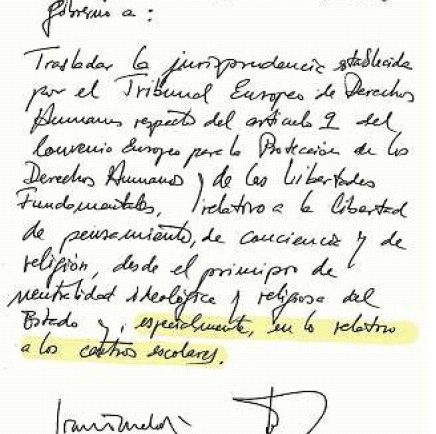 gobierno a:
Trasladar la jurisprudencia establecida
por el Tribunal Europeo de Derechos
Humanos respecto del articulo 9 del
Convenio Europeo para la Protección de los
Derechos Humanos y de las libertades
Fundamentales, relativo a la libertad
de pensamiento, de conciencia y de
religión, desde el principio de
neutralidad ideológica y religiosa del
Estado y, especialmente, en lo relativo
a los centros escolares.